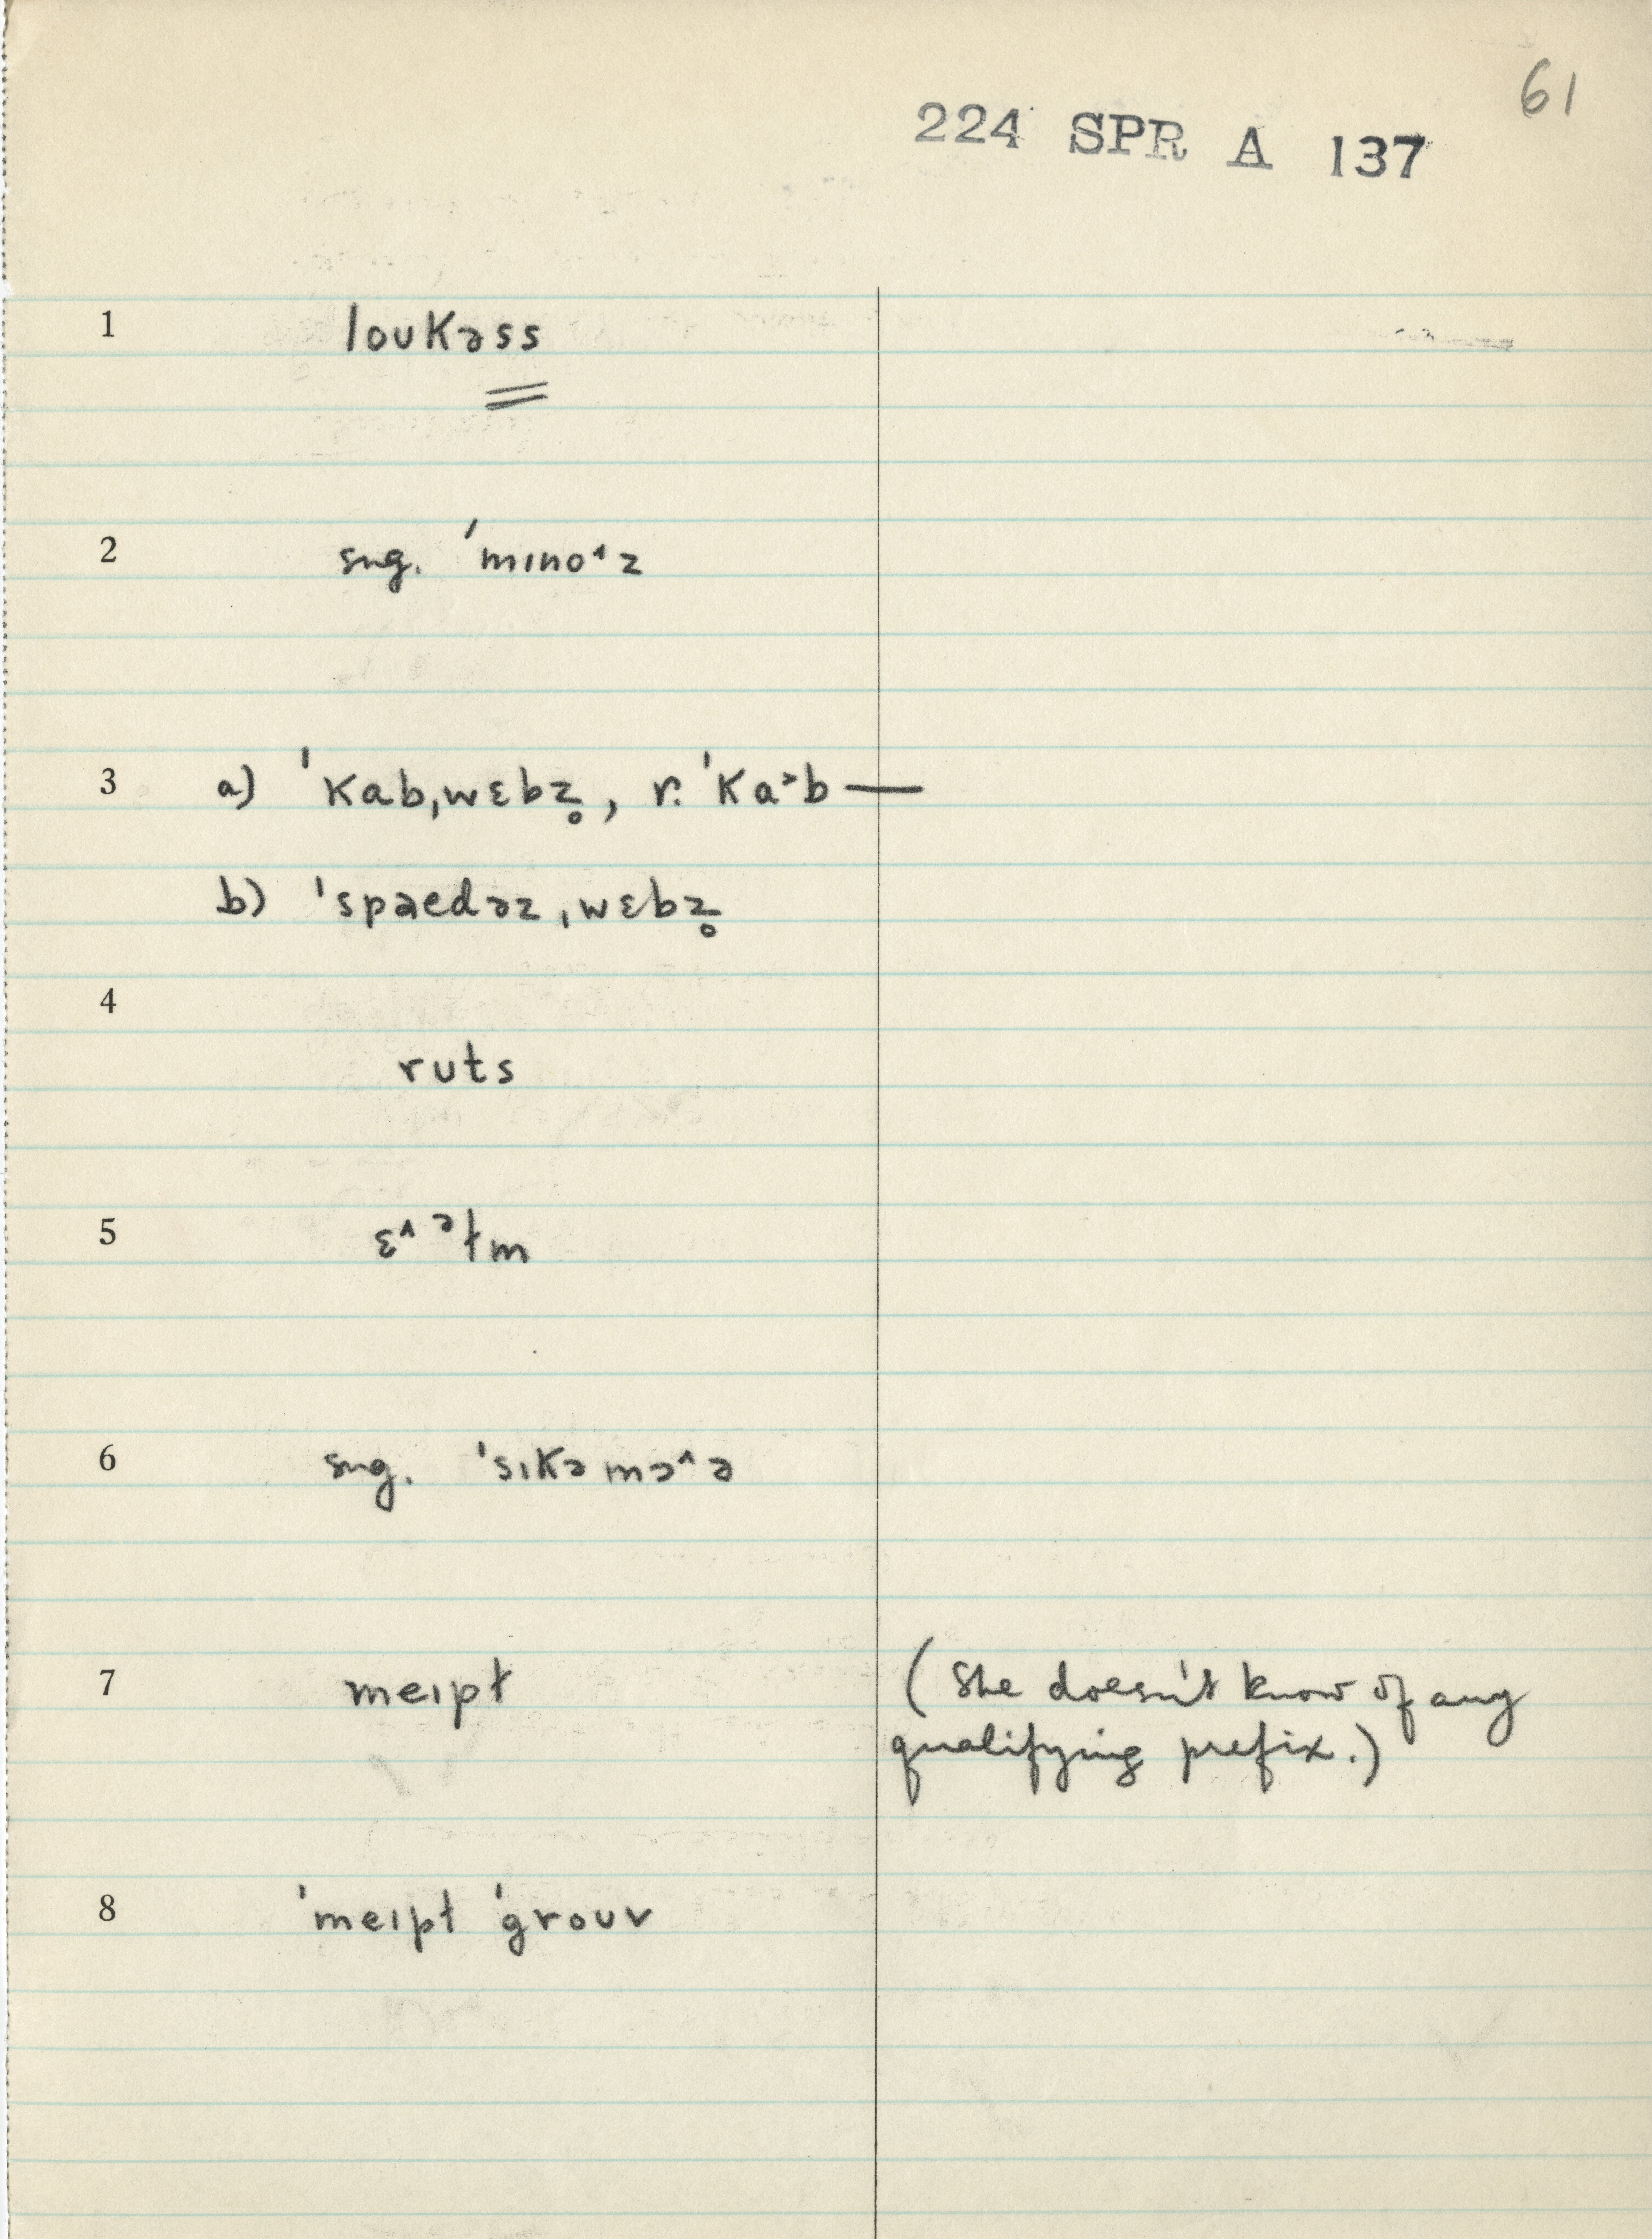 61
224 SPR A 137
1 loʊkəss
2 sug. ˈmɪno˔z
3 a) ˈkabˌwɛbz̥, r. ˈka˃b —
b) ˈspaedəzˌwɛbz̥
4
ruts
5 ɛ^ᵊɫm
6 sug. ˈsɪkəmɔ^ə
7 meɪpɫ (She doesn't know of any
qualifying prefix.)
8 ˈmeɪpɫ ˈgroʊv